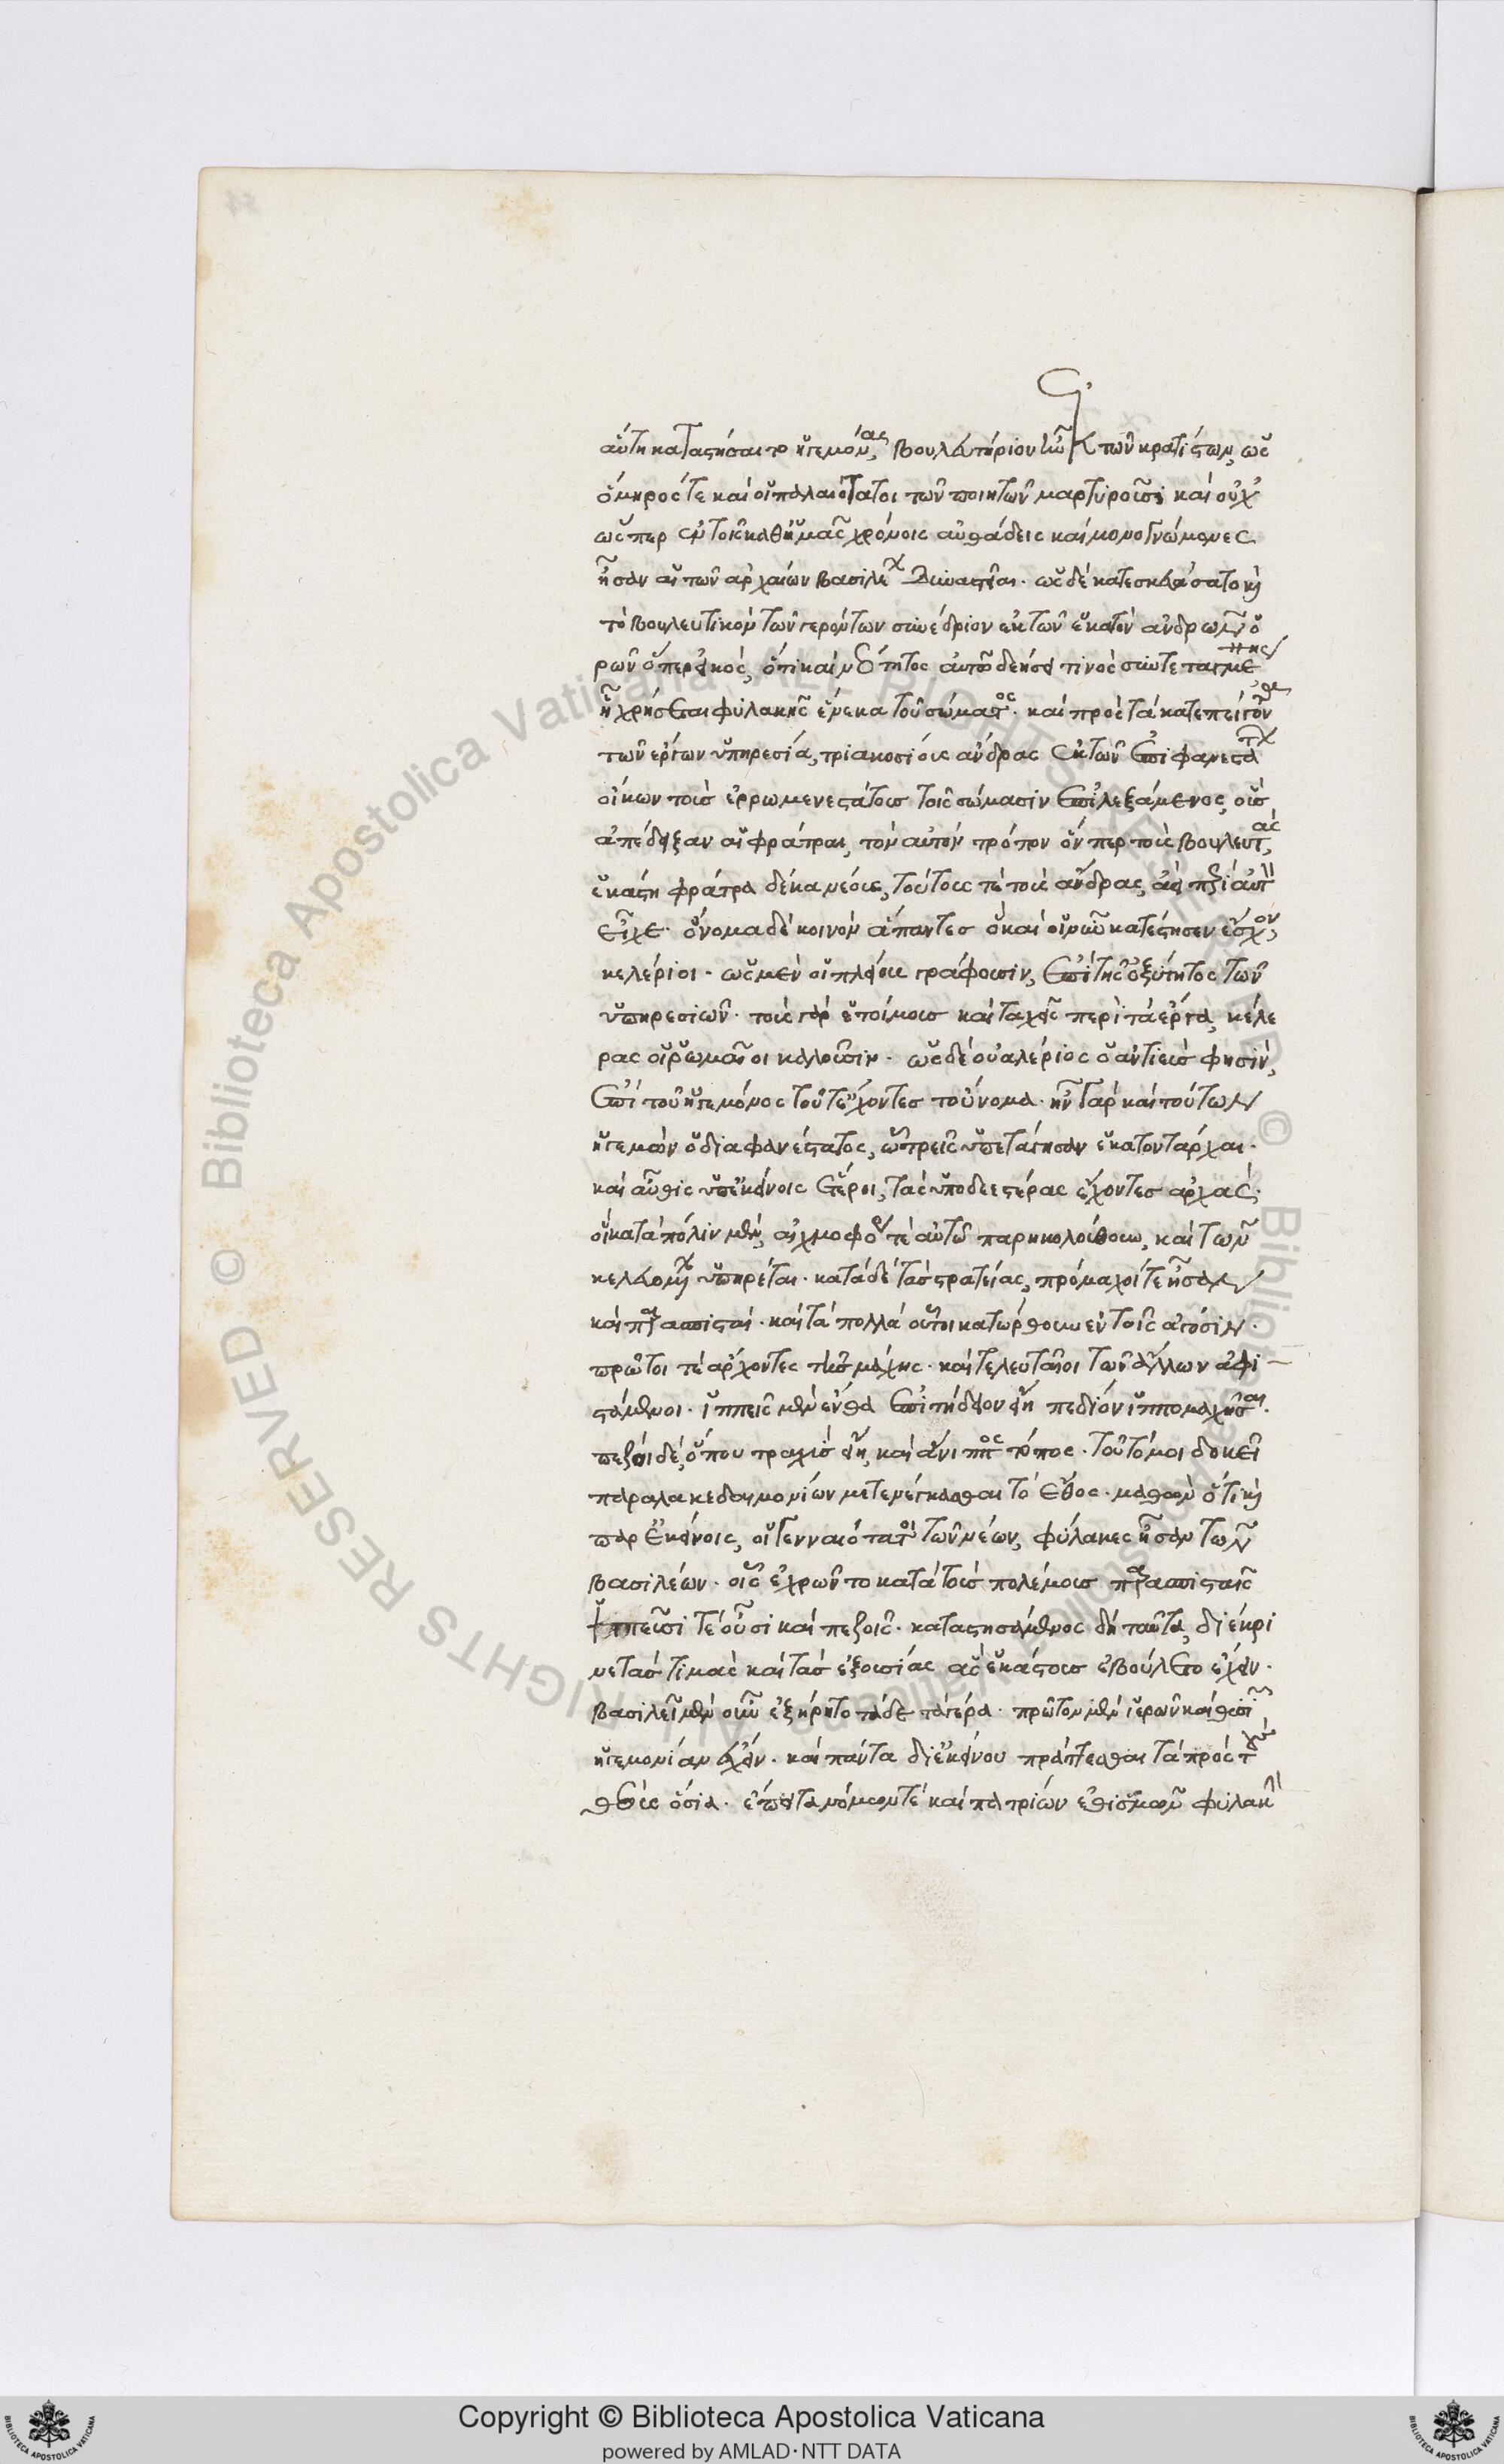 αὐτὴ καταστήσαιτο ἡγεμόνας, βουλευτήριον ἦν ἐκ τῶν κρατίστων, ὡς
ὅμηρός τε καὶ οἱ παλαιότατοι τῶν ποιητῶν μαρτυροῦσι καὶ οὐχ
ὥσπερ ἐν τοῖς καθ' ἡμᾶς χρόνοις αὐθάδεις καὶ μονογνώμονες
ἦσαν αἱ τῶν ἀρχαίων βασιλέων δυναστεῖαι. ὡς δὲ κατεσκευάσατο καὶ
τὸ βουλευτικὸν τῶν γερόντων συνέδριον ἐκ τῶν ἑκατὸν ἀνδρῶν ὁ
ρῶν ὅπερ εἰκὸς, ὅτι καὶ νεότητος αὐτῷ δεήσει τινὸς συντεταγμένης
ᾗ χρήσεται φυλακῆς ἕνεκα τοῦ σώματος. καὶ πρὸς τὰ κατεπείγοντα
τῶν ἔργων ὑπηρεσίᾳ, τριακοσίους ἄνδρας ἐκ τῶν ἐπιφανεστάτων
οἴκων τοὺς ἐρρωμενεστάτους τοῖς σώμασιν ἐπιλεξάμενος, οὓς
ἀπέδειξαν αἱ φράτραι, τὸν αὐτὸν τρόπον ὅνπερ τοὺς βουλευτὰς,
ἑκάστη φράτρα δέκα νέους, τούτους τὲ τοὺς ἄνδρας ἀεὶ περὶ αὑτὸν
εἶχε. ὄνομα δὲ κοινὸν ἅπαντες ὃ καὶ οἱ νῦν κατέστησεν ἔσχον,
κελέριοι. ὡς μὲν οἱ πλείους γράφουσιν, ἐπὶ τῆς ὀξύτητος τῶν
ὑπηρεσιῶν. τοὺς γὰρ ἑτοίμους καὶ ταχεῖς περὶ τὰ ἔργα, κέλε
ρας οἱ ῥωμαῖοι καλοῦσιν. ὡς δὲ οὐαλέριος ὁ ἀντιεύς φησιν,
ἐπὶ τοῦ ἡγεμόνος τοῦτ' ἔχοντες τοὔνομα. ἦν γὰρ καὶ τούτων
ἡγεμὼν ὁ διαφανέστατος, ᾧ τρεῖς ὑπετάγησαν ἑκατοντάρχαι.
καὶ αὖθις ὑπ' ἐκείνοις ἕτεροι, τὰς ὑποδεεστέρας ἔχοντες ἀρχάς.
οἳ κατὰ πόλιν μὲν, αἰχμοφόροι τὲ αὐτῷ παρηκολούθουν, καὶ τῶν
κελευομένων ὑπηρέται. κατὰ δὲ τὰς στρατείας, πρόμαχοί τε ἦσαν
καὶ παρασπισταί. καὶ τὰ πολλὰ οὗτοι κατώρθουν ἐν τοῖς ἀγῶσιν.
πρῶτοι τὲ ἄρχοντες τῆς μάχης. καὶ τελευταῖοι τῶν ἄλλων ἀφι
στάμενοι. ἱππεῖς μὲν ἔνθα ἐπιτήδειον εἴη πεδίον ἱππομαχῆσαι.
πεζοὶ δὲ, ὅπου τραχὺς εἴη, καὶ ἄνιππος τόπος. τοῦτό μοι δοκεῖ
παρὰ λακεδαιμονίων μετενέγκασθαι τὸ ἔθος. μαθὼν ὅτι καὶ
παρ' ἐκείνοις, οἱ γενναιότατοι τῶν νέων, φύλακες ἦσαν τῶν
βασιλέων. οἷς ἐχρῶντο κατὰ τοὺς πολέμους παρασπισταῖς
ἱππεῦσί τε οὖσι καὶ πεζοῖς. καταστησάμενος δὴ ταῦτα, διέκρι
νε τὰς τιμὰς καὶ τὰς ἐξουσίας ἃς ἑκάστους ἐβούλετο ἔχειν.
βασιλεῖ μὲν οὖν ἐξῄρητο τάδε τὰ γέρα. πρῶτον μὲν ἱερῶν καὶ θυσιῶν
ἡγεμονίαν ἔχειν. καὶ πάντα δι' ἐκείνου πράττεσθαι τὰ πρὸς τοὺς
θεοὺς ὅσια. ἔπειτα νόμων τὲ καὶ πατρίων ἐθισμῶν φυλακὴν